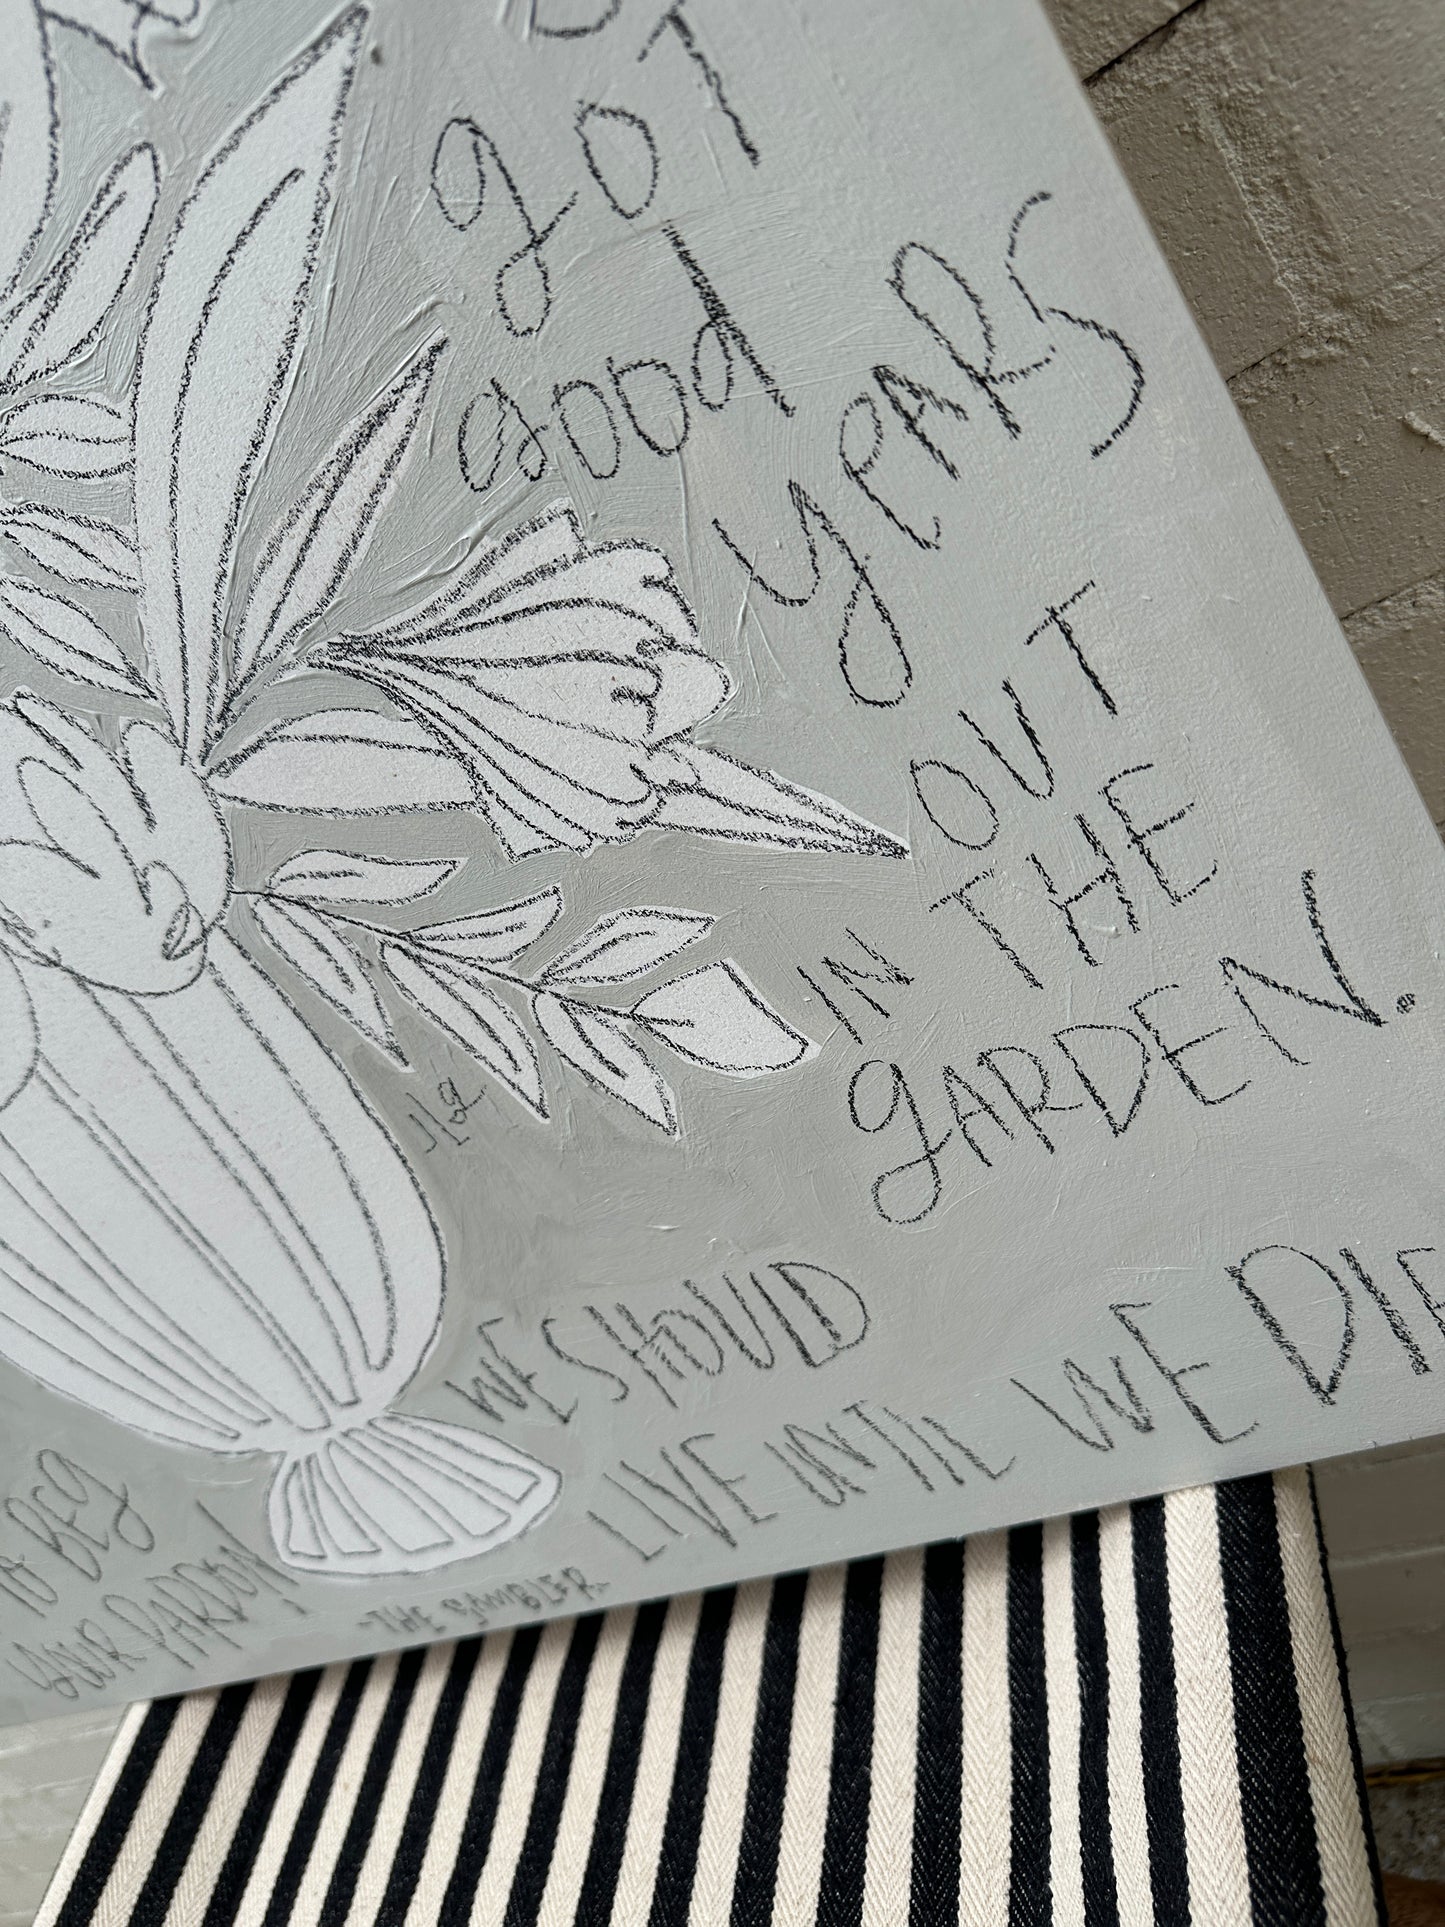 gOT
good
YEARS
OUT
IN THE
gARDEN.
WE SHOULD
LIVE UNTIL WE DIE
TO BEg
YOUR PARDON!